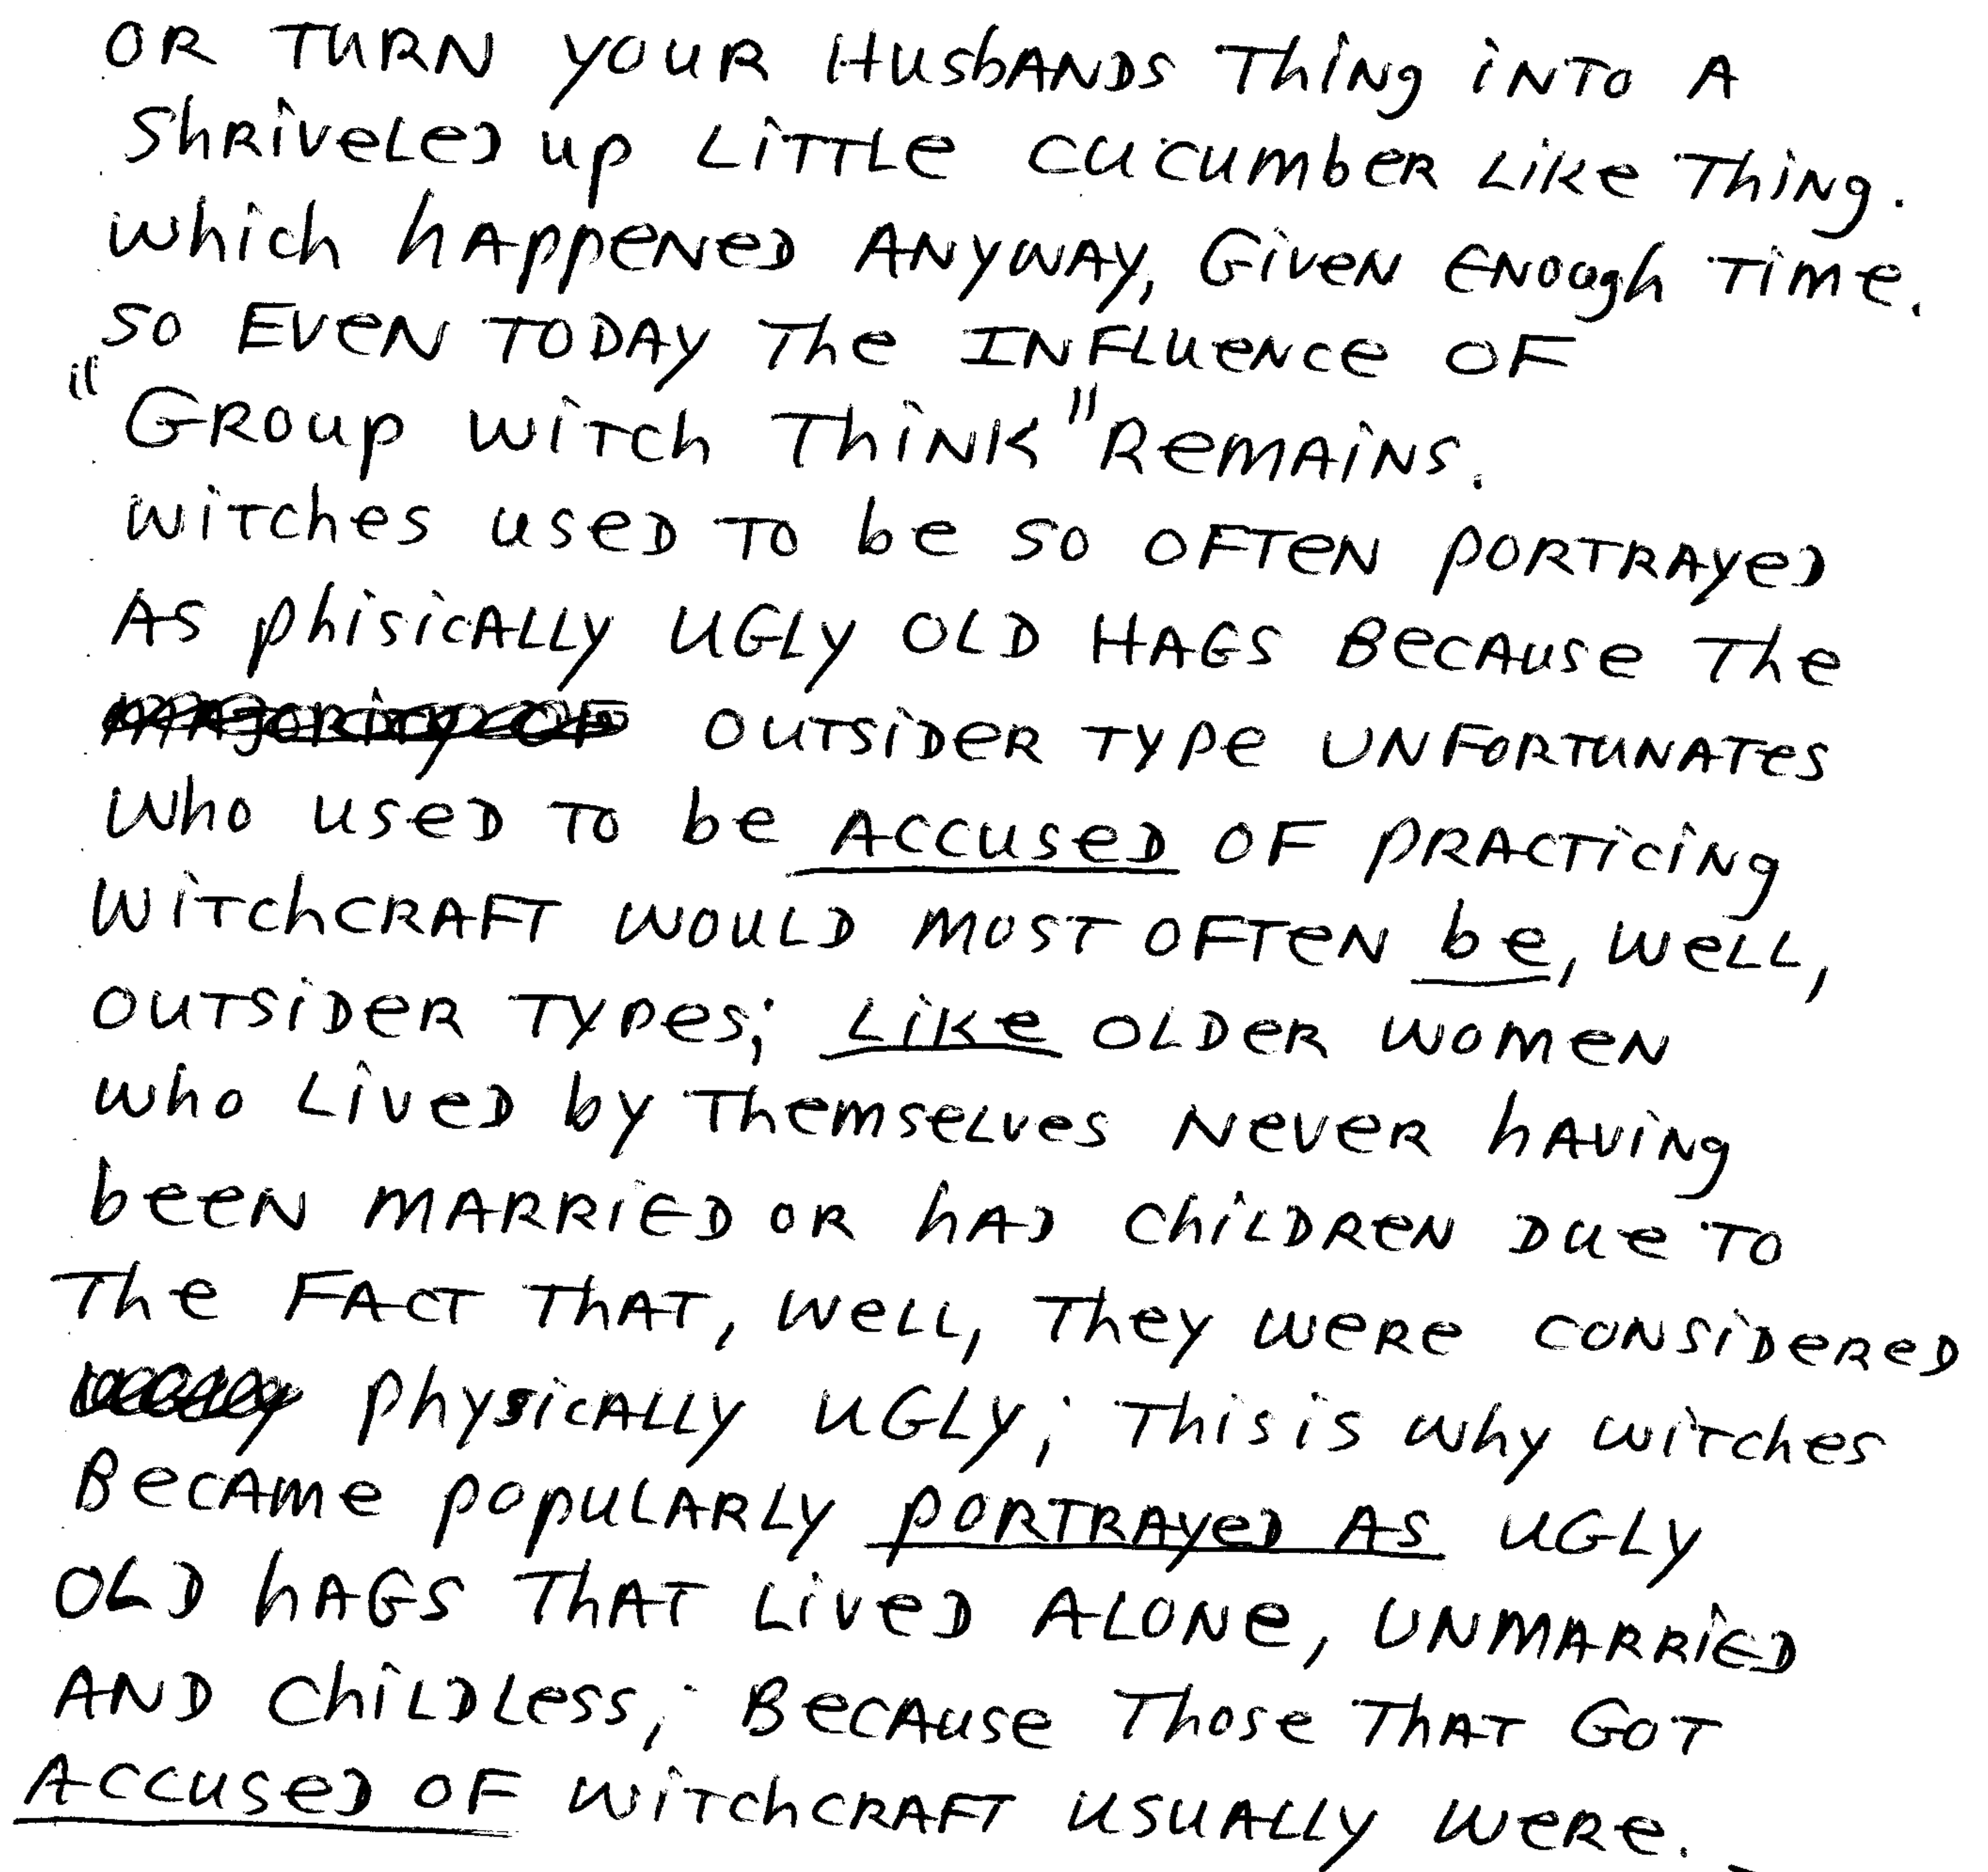 OR TURN YOUR HUSBANDS THING INTO A
SHRIVELED UP LITTLE CUCUMBER LIKE THING.
WHICH HAPPENED ANYWAY, GIVEN ENOUGH TIME.
SO EVEN TODAY THE INFLUENCE OF
"GROUP WITCH THINK" REMAINS.
WITCHES USED TO BE SO OFTEN PORTRAYED
AS PHISICALLY UGLY OLD HAGS BECAUSE THE
OUTSIDER TYPE UNFORTUNATES
WHO USED TO BE ACCUSED OF PRACTICING
WITCHCRAFT WOULD MOST OFTEN BE, WELL,
OUTSIDER TYPES; LIKE OLDER WOMEN
WHO LIVED BY THEMSELVES NEVER HAVING
BEEN MARRIED OR HAD CHILDREN DUE TO
THE FACT THAT, WELL, THEY WERE CONSIDERED
PHYSICALLY UGLY; THIS IS WHY WITCHES
BECAME POPULARLY PORTRAYED AS UGLY
OLD HAGS THAT LIVED ALONE, UNMARRIED
AND CHILDLESS; BECAUSE THOSE THAT GOT
ACCUSED OF WITCHCRAFT USUALLY WERE.